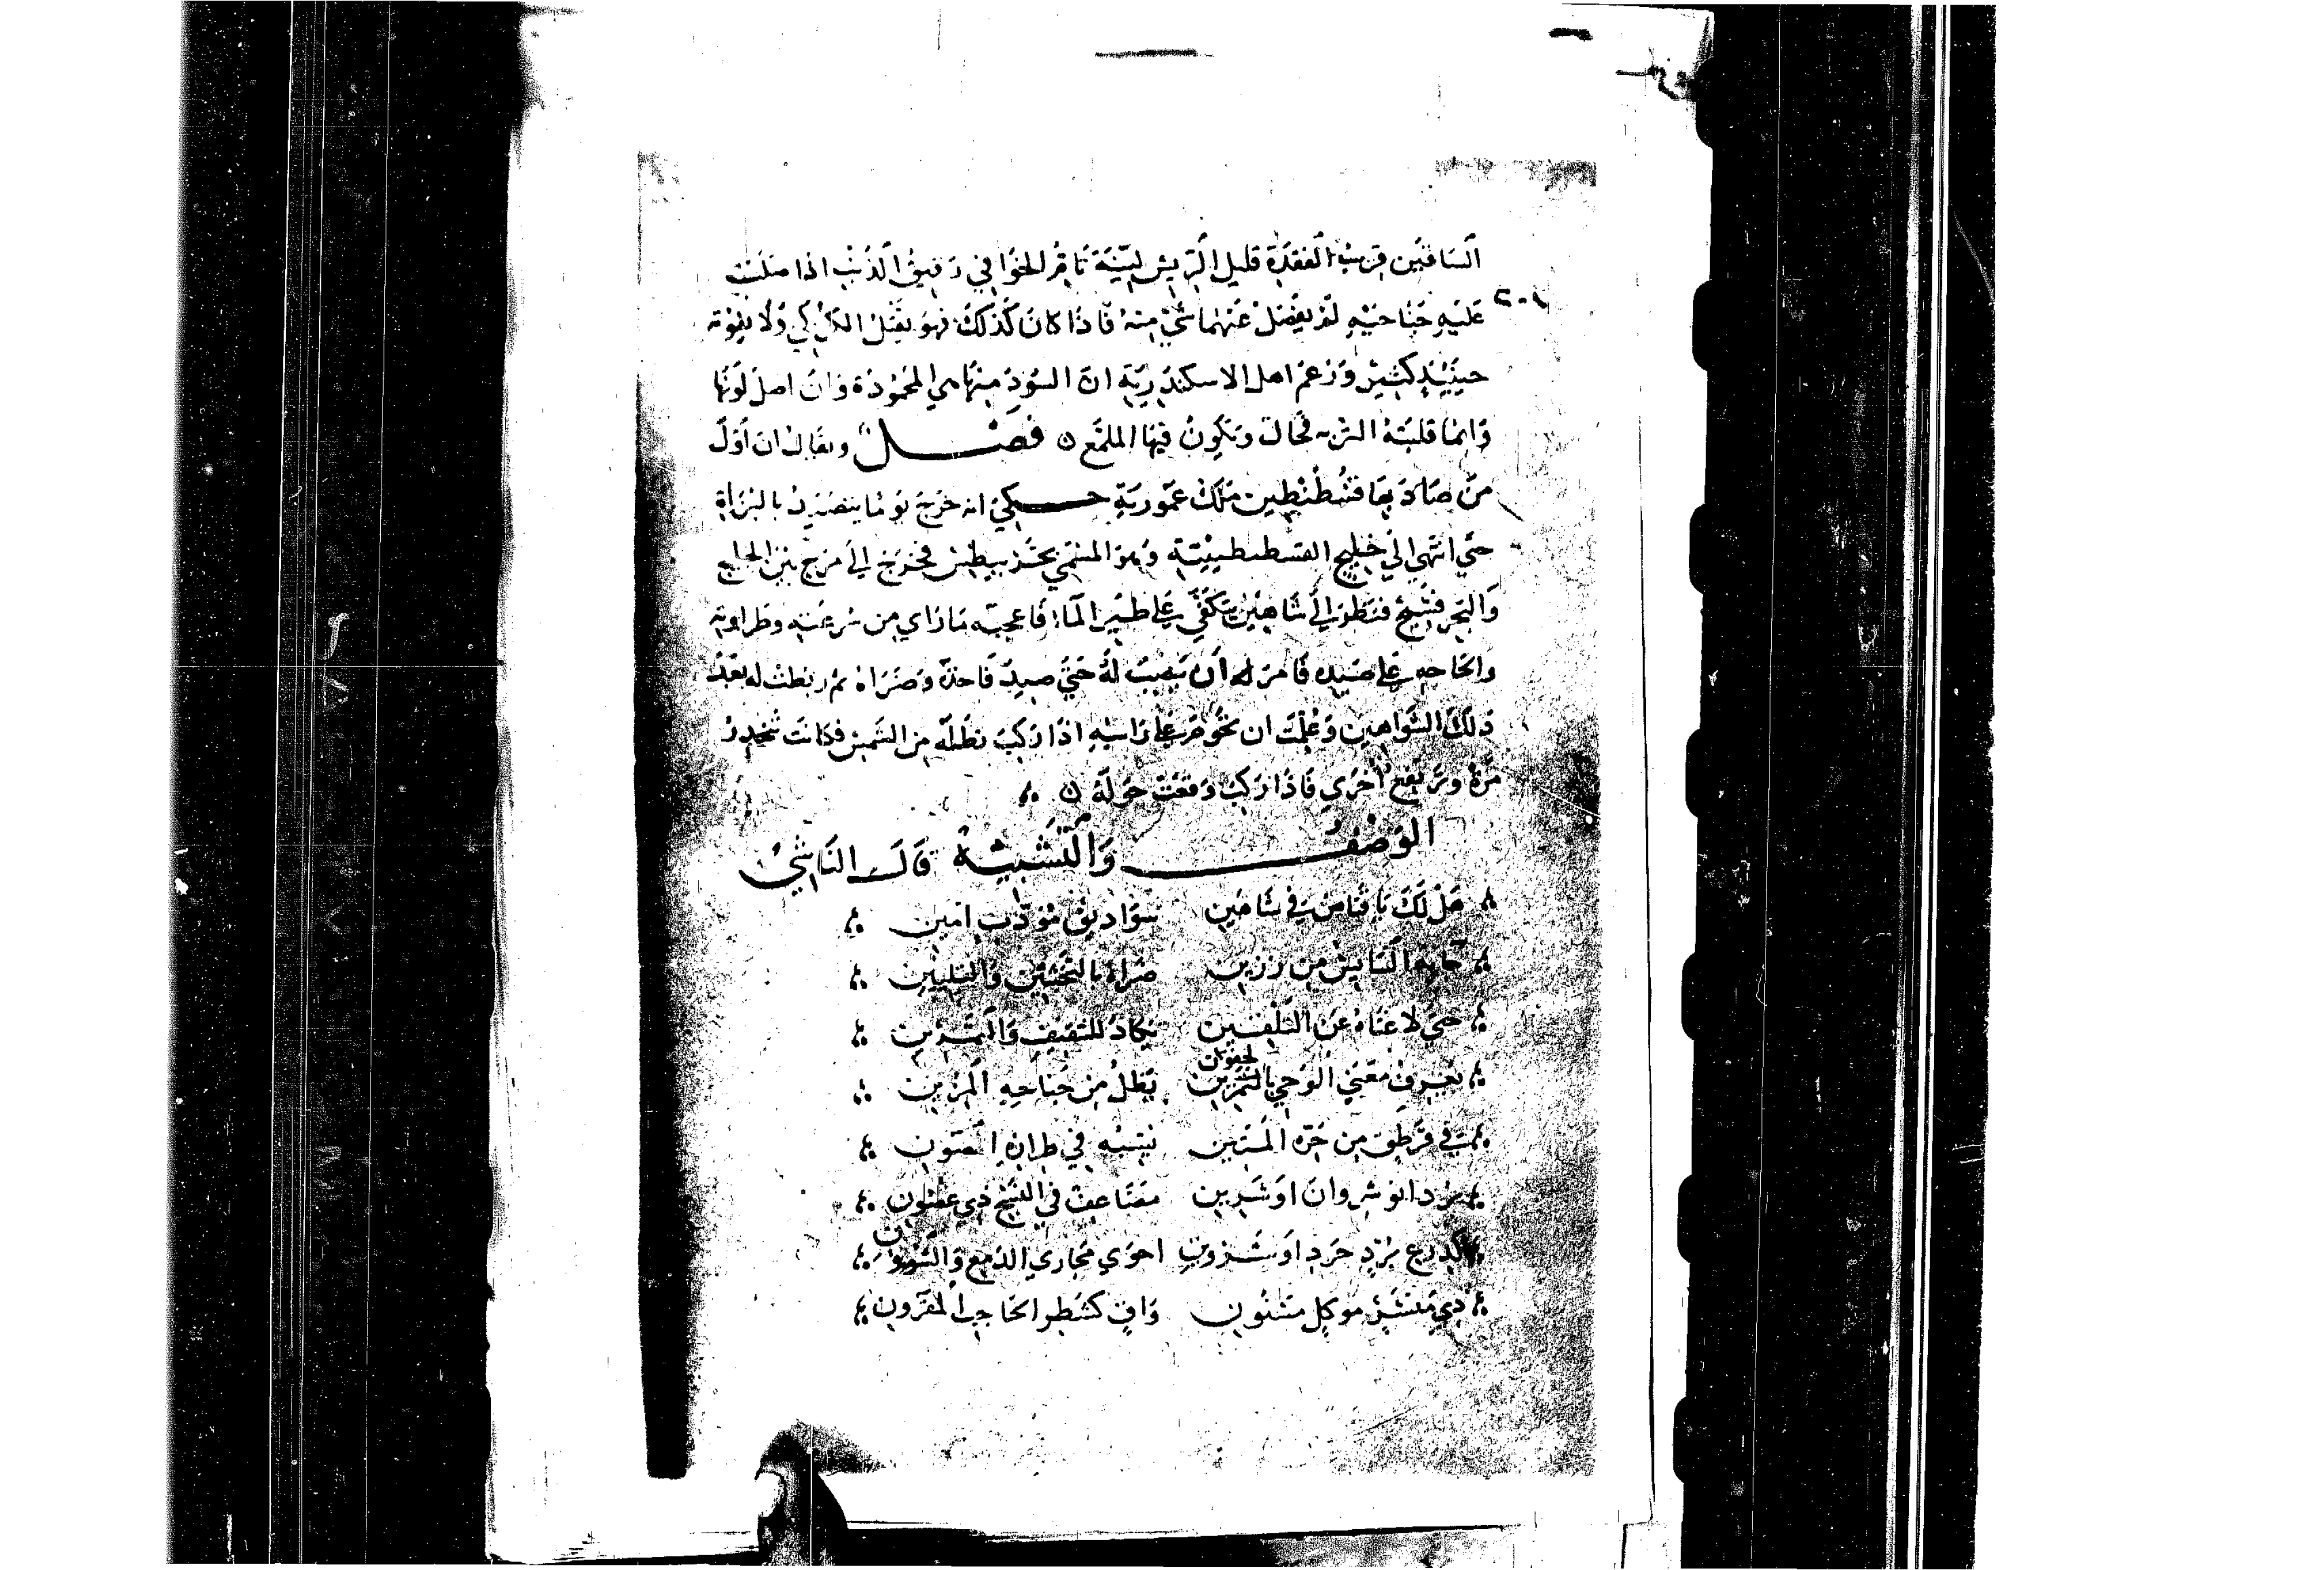 الساقين قريب الفقرة قليل الريش لينه تام الخوافي رقيق الذنب اذا صلبت
٢٠١
عليه جناحيه لم يفضل عنهما شي منه فاذا كان كذلك فهو يقتل الكركي ولا يفوته
حينيذ كثير وزعم اهل الاسكندرية ان السود منها هي المحمودة وان اصل لونها
وانما قلبته التربه فحال وتكون فيها الملمع ن فصل ويقال ان اول
من صاد بها قسطنطين ملك عمورية حكي انه خرج يوما يتصيد بالبزاة
حتي انتهي الي خليج القسطنطينية وهو المنتهي فخرج الي مرج بين الخليج
والبحر فسيح فنظر الي شاهين يتكفي علي طير الماء فاعجبه ما راي من سرعته وضراوته
والحاحه علي صيده فامر له ان ينصب له حتي صيد فاخذه وضراه ثم ربطت له بعد
ذلك الشواهين وعلمت ان تحوم علي راسه اذا ركب تظله من الشمس فكانت تنحدر
مرة وترتفع اخري فاذا ركب وقعت حوله ن
الوصف والتشبيه قال الناشي
هل لك يا قناص في شاهين سوادنيق مؤدب امين
جا به السايس من رزين ضراه بالتخشين والتليين
حتي لاغناه عن التلقين يكاد للتثقيف والتمرين
يعرف معني الوحي بالتمرين الجفون يظل من جناحيه المزين
في قرطق من خزه الثمين يشبه في طرازه المصون
برد انوشروان او شيرين مضاعف في النسج ذي غضون
كدرع يزدجرد او شروين احوي مجاري الدمع والشؤون
ذي منسر موكل مسنون واف كشطر الحاجب المقرون